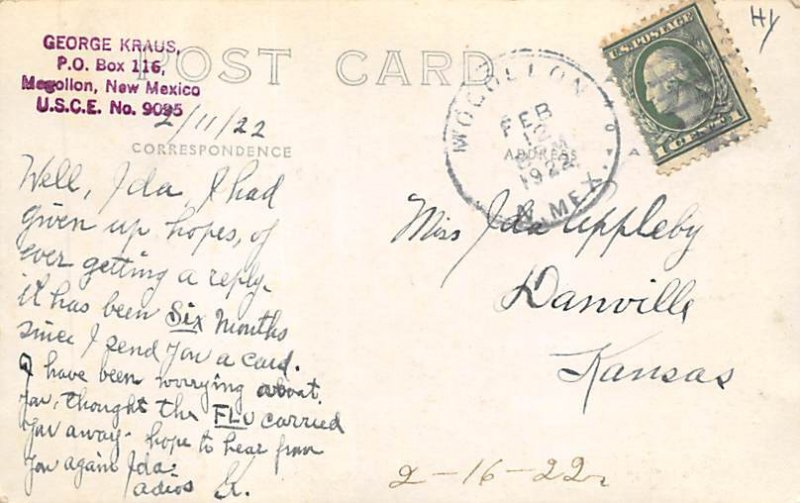 GEORGE KRAUS,
P.O. Box 116,
Mogollon, New Mexico
U.S.C.E. No. 9095
POST CARD
2/11/22
CORRESPONDENCE
Well, Ida, I had
given up hopes, of
ever getting a reply.
it has been Six Months
since I send you a card.
I have been worrying about
you, thought the FLU carried
you away. hope to hear from
you again Ida.
adios
MOGOLLON
FEB
12
M
1922
N. MEX.
ADDRESS
U.S. POSTAGE
1 CENT 1
Miss Ida Appleby
Danville
Kansas
2-16-22
HY